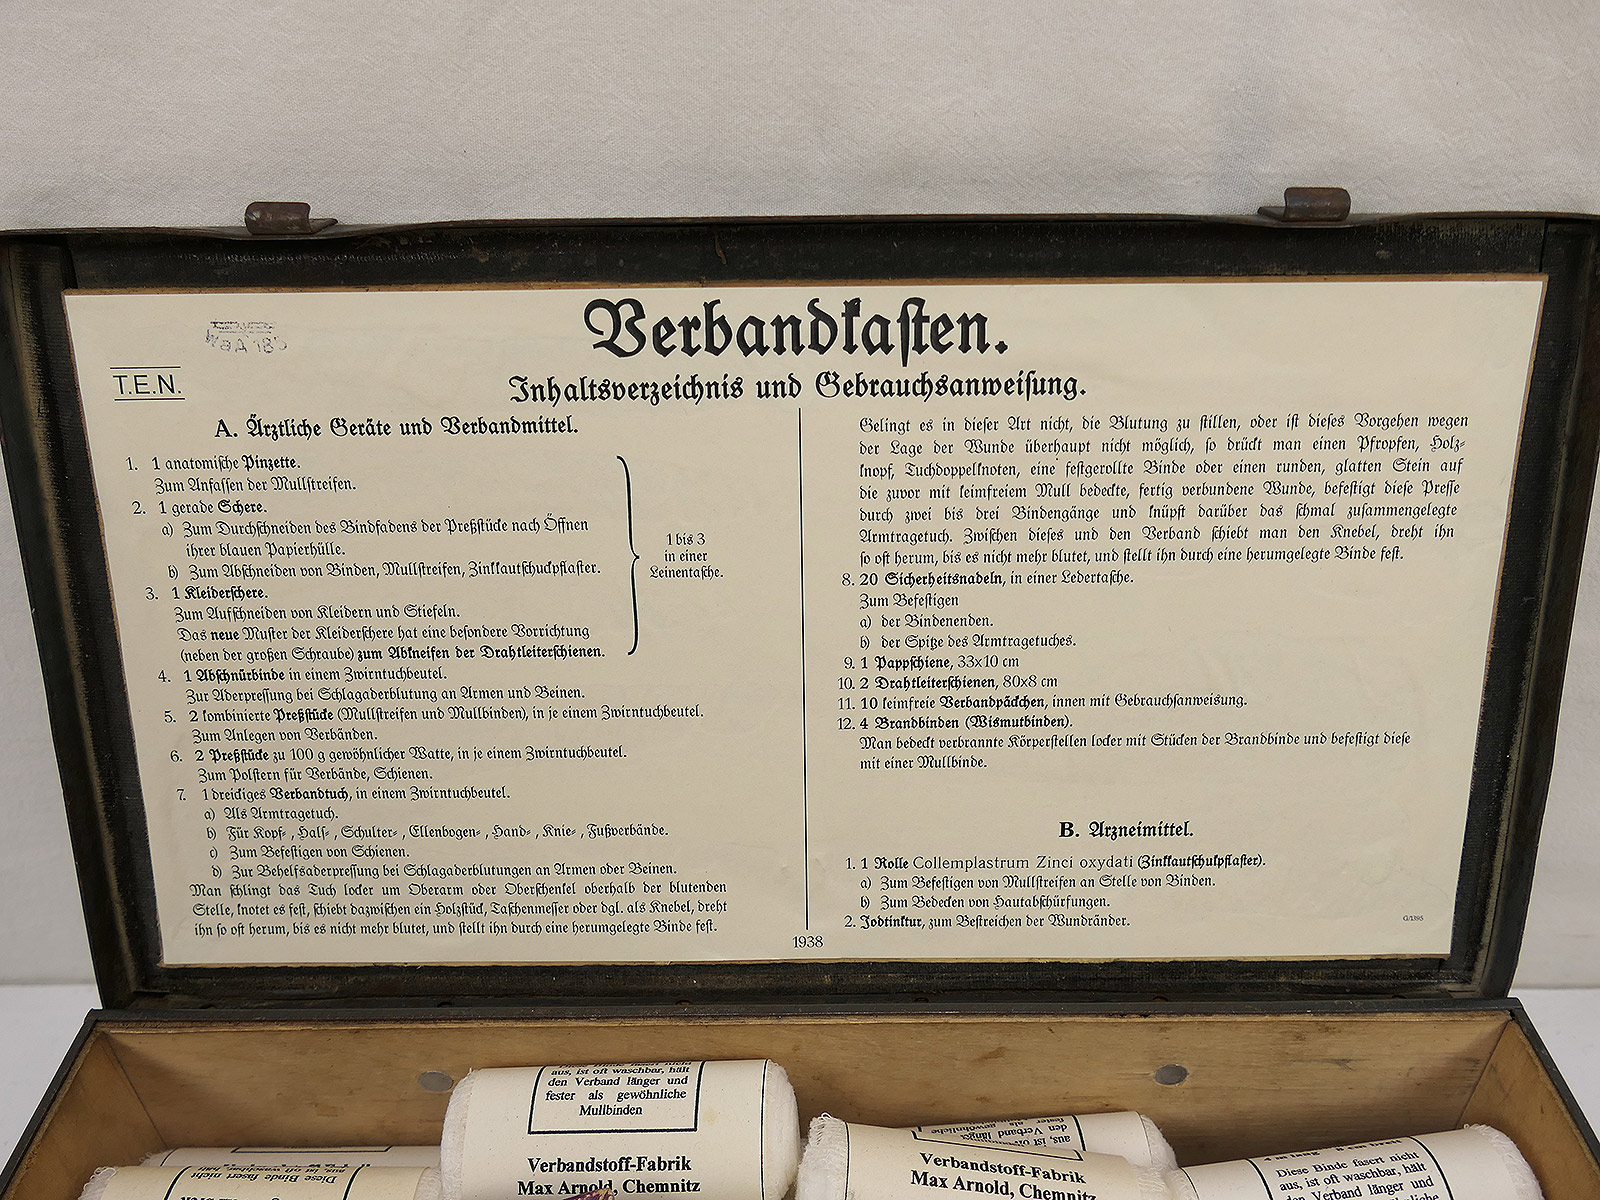 Verbandkasten.
Inhaltsverzeichnis und Gebrauchsanweisung.
T.E.N.
A. Ärztliche Geräte und Verbandmittel.
1. 1 anatomische Pinzette.
Zum Anfassen der Mullstreifen.
2. 1 gerade Schere.
a) Zum Durchschneiden des Bindfadens der Preßstücke nach Öffnen
ihrer blauen Papierhülle.
b) Zum Abschneiden von Binden, Mullstreifen, Zinkkautschuckpflaster.
3. 1 Kleiderschere.
Zum Aufschneiden von Kleidern und Stiefeln.
Das neue Muster der Kleiderschere hat eine besondere Vorrichtung
(neben der großen Schraube) zum Abkneifen der Drahtleiterschienen.
1 bis 3
in einer
Leinentasche.
4. 1 Abschnürbinde in einem Zwirntuchbeutel.
Zur Aderpressung bei Schlagaderblutung an Armen und Beinen.
5. 2 kombinierte Preßstücke (Mullstreifen und Mullbinden), in je einem Zwirntuchbeutel.
Zum Anlegen von Verbänden.
6. 2 Preßstücke zu 100 g gewöhnlicher Watte, in je einem Zwirntuchbeutel.
Zum Polstern für Verbände, Schienen.
7. 1 dreickiges Verbandtuch, in einem Zwirntuchbeutel.
a) Als Armtragetuch.
b) Für Kopf-, Hals-, Schulter-, Ellenbogen-, Hand-, Knie-, Fußverbände.
c) Zum Befestigen von Schienen.
d) Zur Behelfsaderpressung bei Schlagaderblutungen an Armen oder Beinen.
Man schlingt das Tuch locker um Oberarm oder Oberschenkel oberhalb der blutenden
Stelle, knotet es fest, schiebt dazwischen ein Holzstück, Taschenmesser oder dgl. als Knebel, dreht
ihn so oft herum, bis es nicht mehr blutet, und stellt ihn durch eine herumgelegte Binde fest.
Gelingt es in dieser Art nicht, die Blutung zu stillen, oder ist dieses Vorgehen wegen
der Lage der Wunde überhaupt nicht möglich, so drückt man einen Pfropfen, Holz-
knopf, Tuchdoppelknoten, eine festgerollte Binde oder einen runden, glatten Stein auf
die zuvor mit keimfreiem Mull bedeckte, fertig verbundene Wunde, befestigt diese Presse
durch zwei bis drei Bindengänge und knüpft darüber das schmal zusammengelegte
Armtragetuch. Zwischen dieses und den Verband schiebt man den Knebel, dreht ihn
so oft herum, bis es nicht mehr blutet, und stellt ihn durch eine herumgelegte Binde fest.
8. 20 Sicherheitsnadeln, in einer Ledertasche.
Zum Befestigen
a) der Bindenenden.
b) der Spitze des Armtragetuches.
9. 1 Pappschiene, 33x10 cm
10. 2 Drahtleiterschienen, 80x8 cm
11. 10 keimfreie Verbandpäckchen, innen mit Gebrauchsanweisung.
12. 4 Brandbinden (Wismutbinden).
Man bedeckt verbrannte Körperstellen locker mit Stücken der Brandbinde und befestigt diese
mit einer Mullbinde.
B. Arzneimittel.
1. 1 Rolle Collemplastrum Zinci oxydati (Zinkkautschukpflaster).
a) Zum Befestigen von Mullstreifen an Stelle von Binden.
b) Zum Bedecken von Hautabschürfungen.
2. Jodtinktur, zum Bestreichen der Wundränder.
G/1395
1938
aus, ist oft waschbar, hält
den Verband länger und
fester als gewöhnliche
Mullbinden
Verbandstoff-Fabrik
Max Arnold, Chemnitz
fester als gewöhnliche
den Verband länger
aus, ist oft
Verbandstoff-Fabrik
Max Arnold, Chemnitz
Diese Binde fasert nicht
aus, ist oft waschbar, hält
den Verband länger und
gewöhnliche
Diese Binde fasert nicht
aus, ist oft waschbar, hält